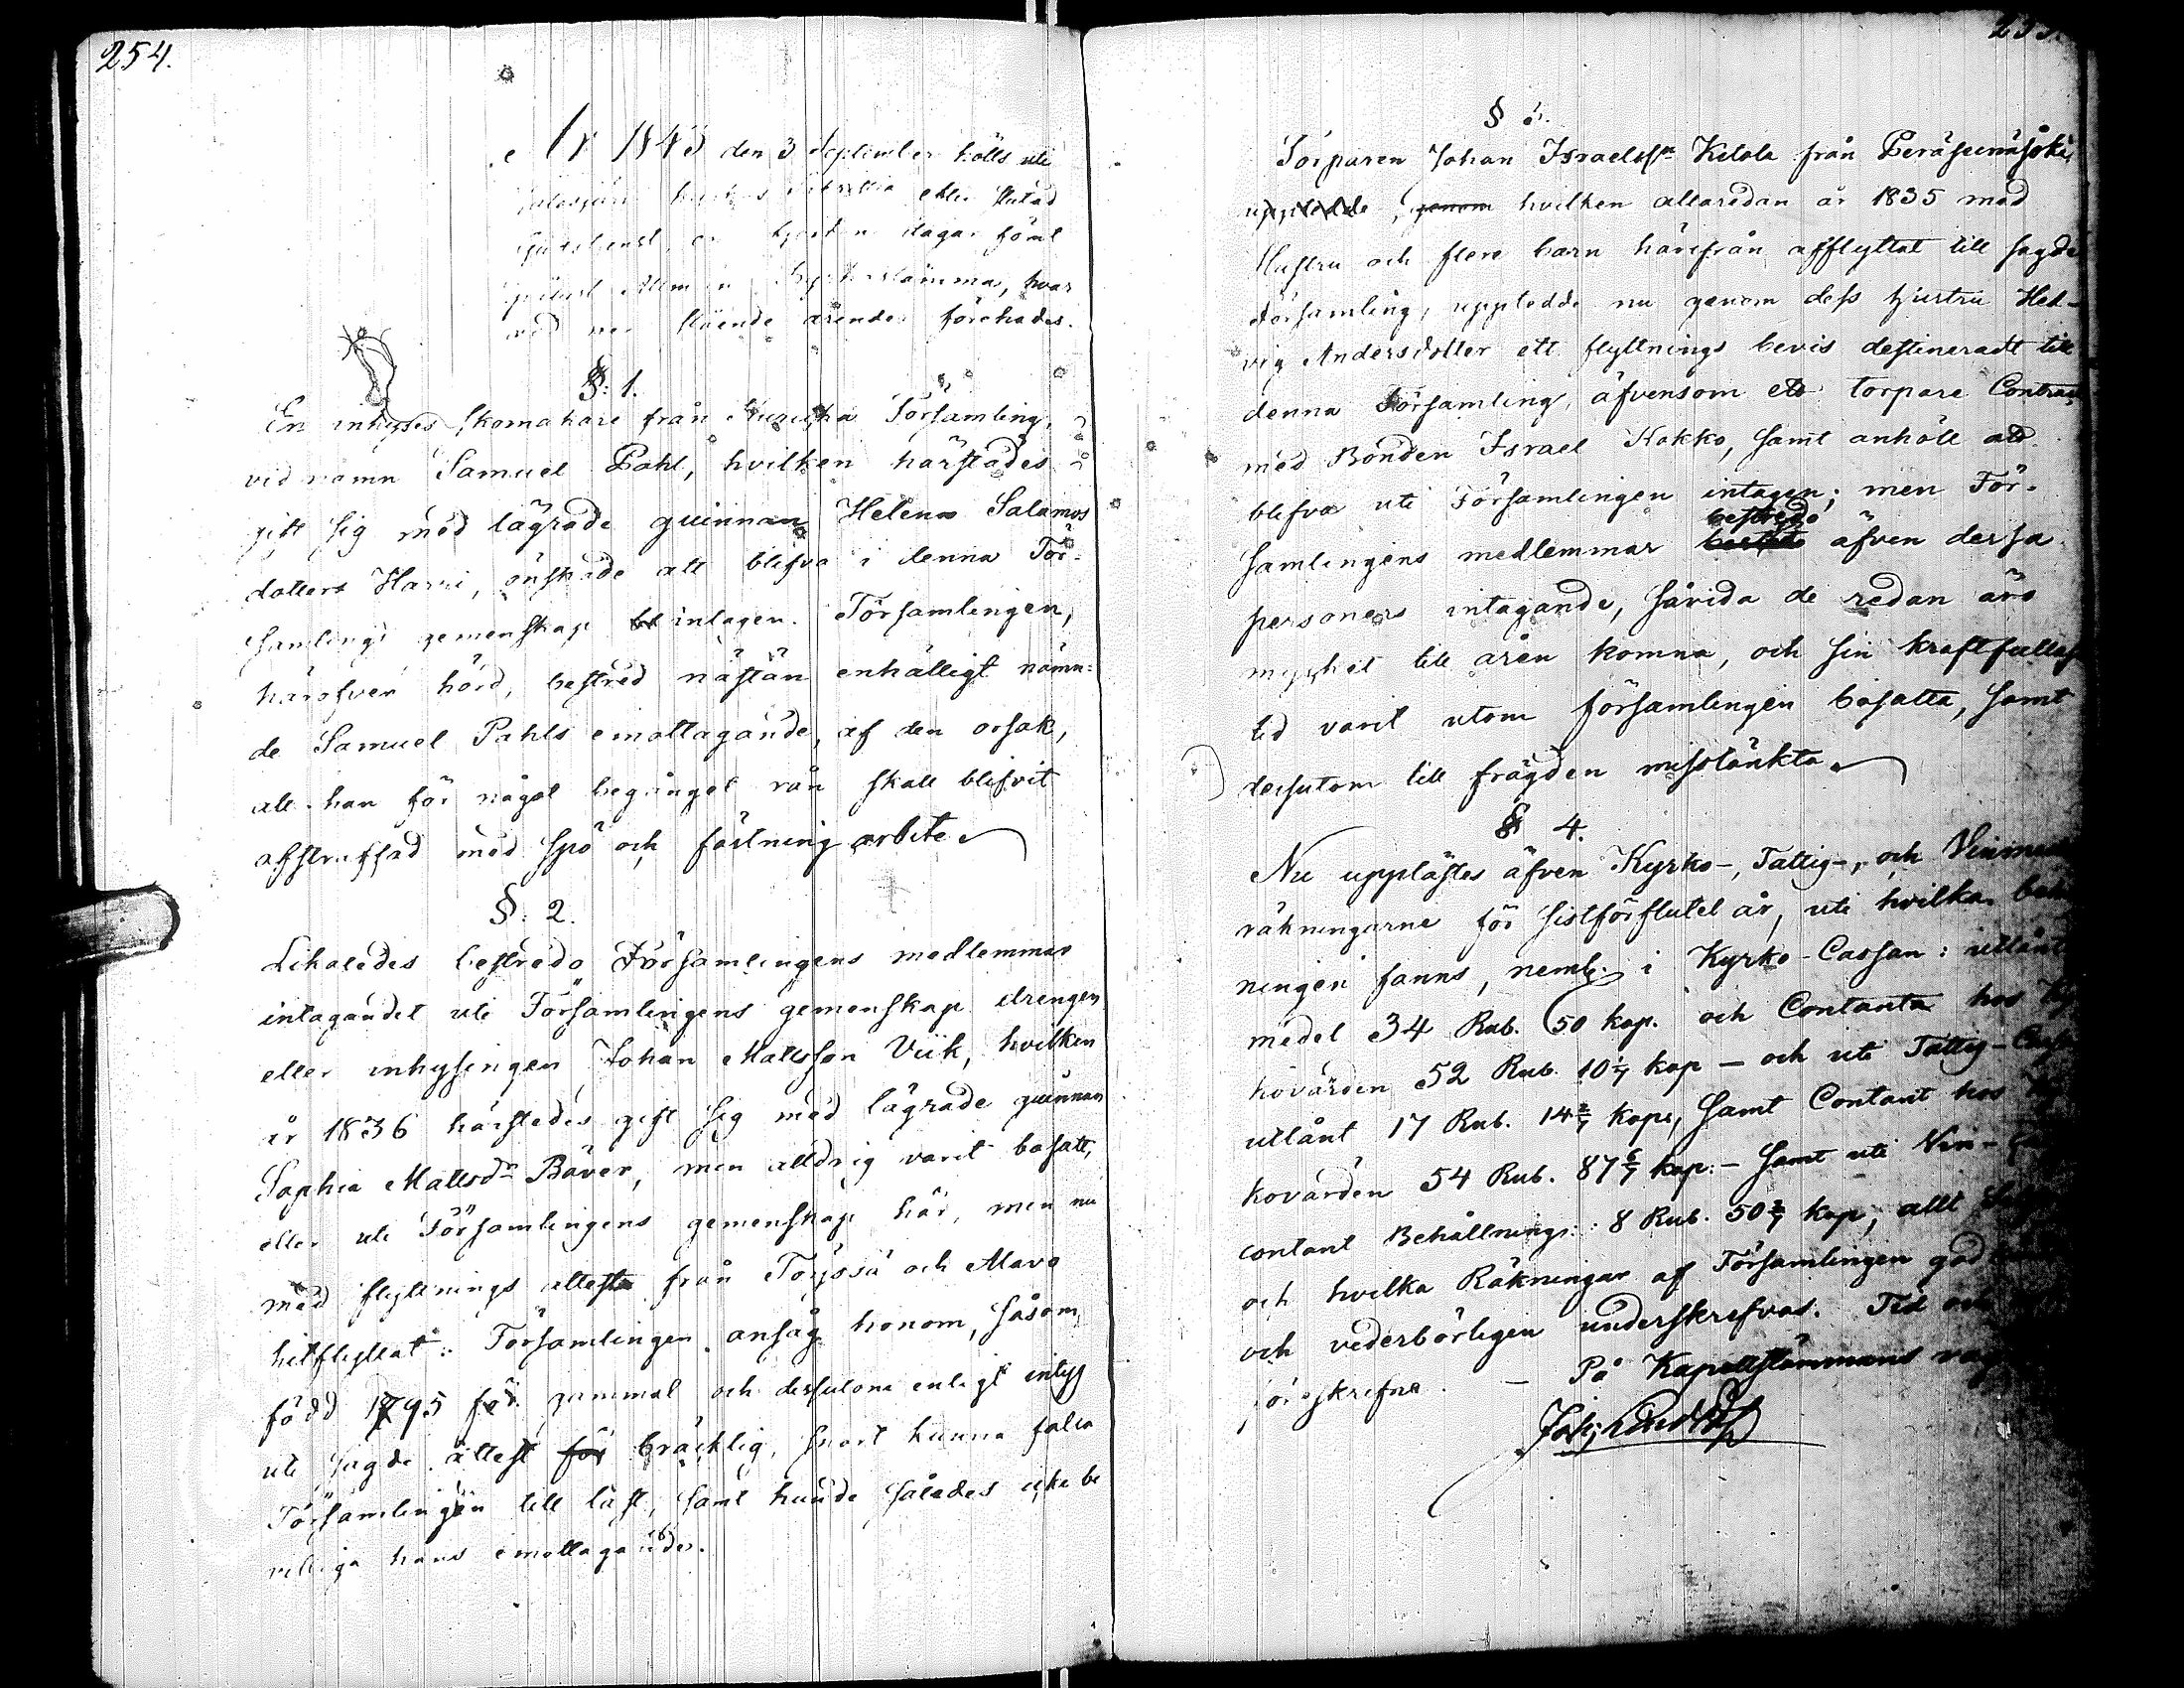 254.
År 1843 den 3 September hölls uti
Jalasjärvi efter slutad
Gudstjenst, dagar förut
stämma, hvar
vid ne stående ärender förehades.
§: 1.
En inhyses skomakare från Församling,
vid namn Samuel Pahl, hvilken härstädes
gift sig med lägrade quinnan Helena Salamos
dotter Harri, önskade att blifva i denna För-
samlings gemenskap intagen. Församlingen,
häröfver hörd, bestred nästän enhälligt nämn-
de Samuel Pahls emottagande, af den orsak,
att han för något begånget rån skall blifvit
afstraffad med spö och fästning arbete
§: 2.
Likaledes bestredo Församlingens medlemmar
intagandet uti Församlingens gemenskap drengen
eller inhysingen Johan Mattsson Viik, hvilken
år 1836 härstedes gift sig med lägrade quinnan
Sophia Mattsdr Bäver, men alldrig varit bosatt,
eller uti Församlingens gemenskap här, men nu
med flyttnings attest från Töysä och Alavo
hitflyttat: Församlingen ansåg honom, såsom
född 1795 för gammal och dessutom enligt intyg
uti sagde attest för bräcklig, snart kunna falla
Församlingen till last, samt kunde således icke be
villiga hans emottagande.
§ 3.
Torparen Johan Israelssn Ketola från Peräseinäjoki,
uppledde, genom hvilken allaredan år 1835 med
Hustru och flere barn härifrån afflyttat till sagde
Församling, uppledde nu genom dess hustru Hed-
vig Andersdotter ett flyttnings bevis destineradt till
denna Församling, äfvensom ett torpare Contract
med Bonden Israel Kokko, samt anhöll att
blifva uti Församlingen intagen; men För-
samlingens medlemmar bestredo äfven dersa
personers intagande, såvida de redan äro
mycket till åren komna, och sin kraftfullaste
tid varit utom församlingen bosatta, samt
dessutom till frägden misstänkta
§ 4.
Nu upplästes äfven Kyrko-, Fattig-, och Vinmedels
räkningarne för sistförflutet år, uti hvilka
ningen fanns, neml. i Kyrko-Cassan: utlånt
medel 34 Rub. 50 kop. och Contanta hos
kovärden 52 Rub. 10 1/7 kop - och uti Fattig-Cassan
utlånt 17 Rub. 14 2/7 kop, samt Contant hos
kovärden 54 Rub. 87 6/7 kop:- samt uti Vin-
contant Behållnings: 8 Rub. 50 2/7 kop, allt
och hvilka Räkningar af Församlingen god
och vederbörligen underskrefvos. Tid och
föreskrefne. - På Kapellstämmans